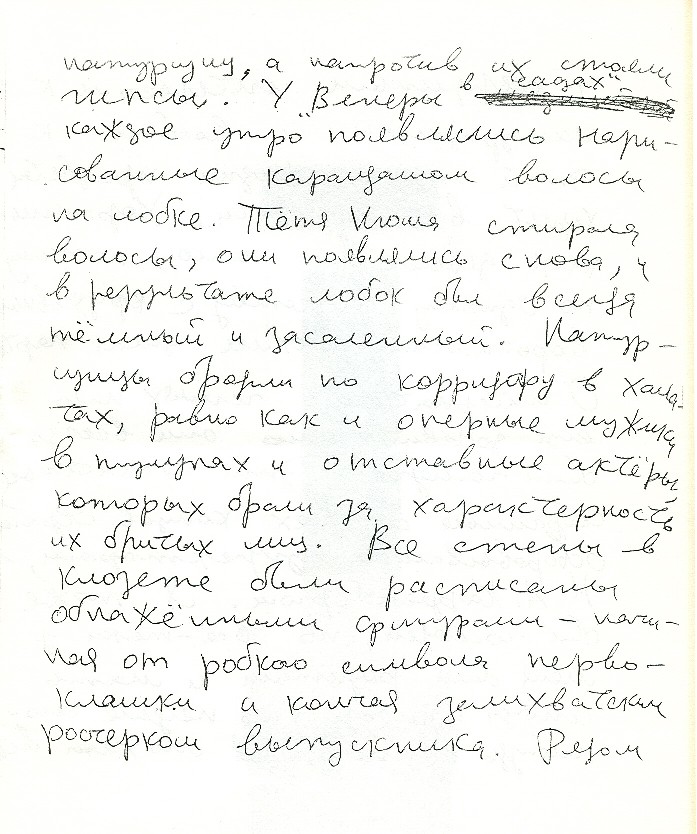 натурщиц, а напротив их стояли
гипсы. У „Венеры в садах"
каждое утро появлялись нари-
сованные карандашом волосы
на лобке. Тётя Нюша стирала
волосы, они появлялись снова, и
в результате лобок был всегда
тёмный и засаленный. Натур-
щицы бродили по корридору в хала-
тах, равно как и оперные мужики
в тулупах и отставные актёры,
которых брали за характерность
их бритых лиц. Все стены в
клозете были расписаны
обнажёнными фигурами – начи-
ная от робкого символа перво-
клашки и кончая залихватским
росчерком выпускника. Рядом